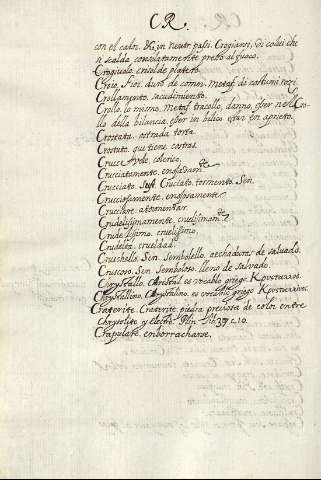 CR.
con el calor. & in neutr. pass. Crogiarsi, di colui che
si scalda consolatamente presso al fuoco.
Crogiuolo, crisol de platero.
Croio, Fior. duro de comm. Metaf. di costumi rozi.
Crollamento, sacudimiento.
Crollo, lo mismo, Metaf. tracollo, danno, esser nel Crollo
della bilancia, esser in bilico estar en aprieto.
Crostata, ostrada torta
Crostuto, que tiene costras.
Crucce colerico.
Crucciatamente, enojadam.te
Crucciato, Sust. Cruciato, tormento, Sen.
Crucciosamente, enojosamente
Cruciare atormentar
Crudelissimamente, cruelissimam.te
Crudelissimo, cruelissimo,
Crudeltà, crueldad.
Cruschello, Sen. Sembolello, aechaduras de salvado.
Cruscoso, Sen. Semboloso, lleno de salvado
Chrystallo, Christal, es vocablo griego
Chrystallino, Christalino, es vocablo griego
Cragerite Cragerite piedra preciosa de color entre
Chrysolite y electro. Plin. lib. 37. c. 10.
Crapulare, emborracharse.